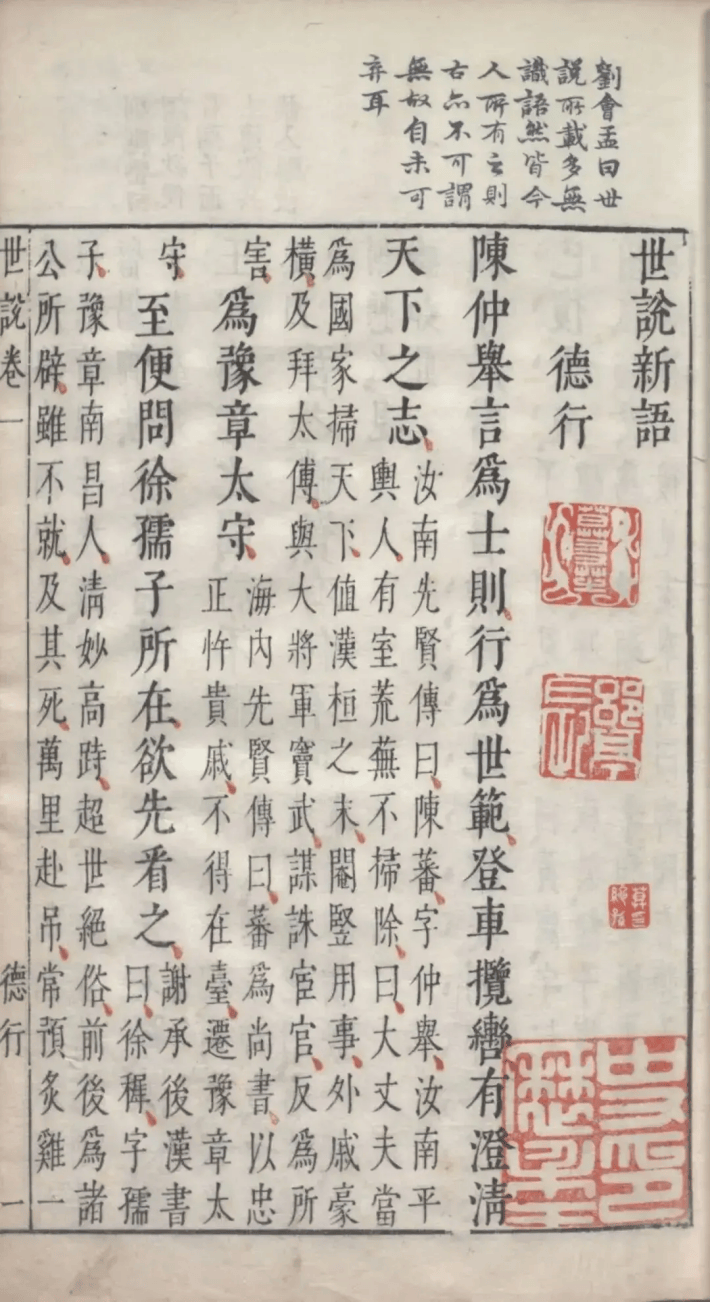 劉會孟曰世
說所載多無
識語然皆今
人所有則
古亦不可謂
無故自未可
弃耳
世說新語
德行
陳仲舉言爲士則行爲世範登車攬轡有澄清
天下之志
汝南先賢傳曰陳蕃字仲舉汝南平
輿人有室荒蕪不掃除曰大丈夫當
爲國家掃天下值漢桓之末閹豎用事外戚豪
橫及拜太傅與大將軍竇武謀誅宦官反爲所
害
爲豫章太守
海內先賢傳曰蕃爲尚書以忠
正忤貴戚不得在臺遷豫章太
守
至便問徐孺子所在欲先看之
謝承後漢書
曰徐穉字孺
子豫章南昌人清妙高跱超世絕俗前後爲諸
公所辟雖不就及其死萬里赴吊常預炙雞一
世說卷一 德行 一